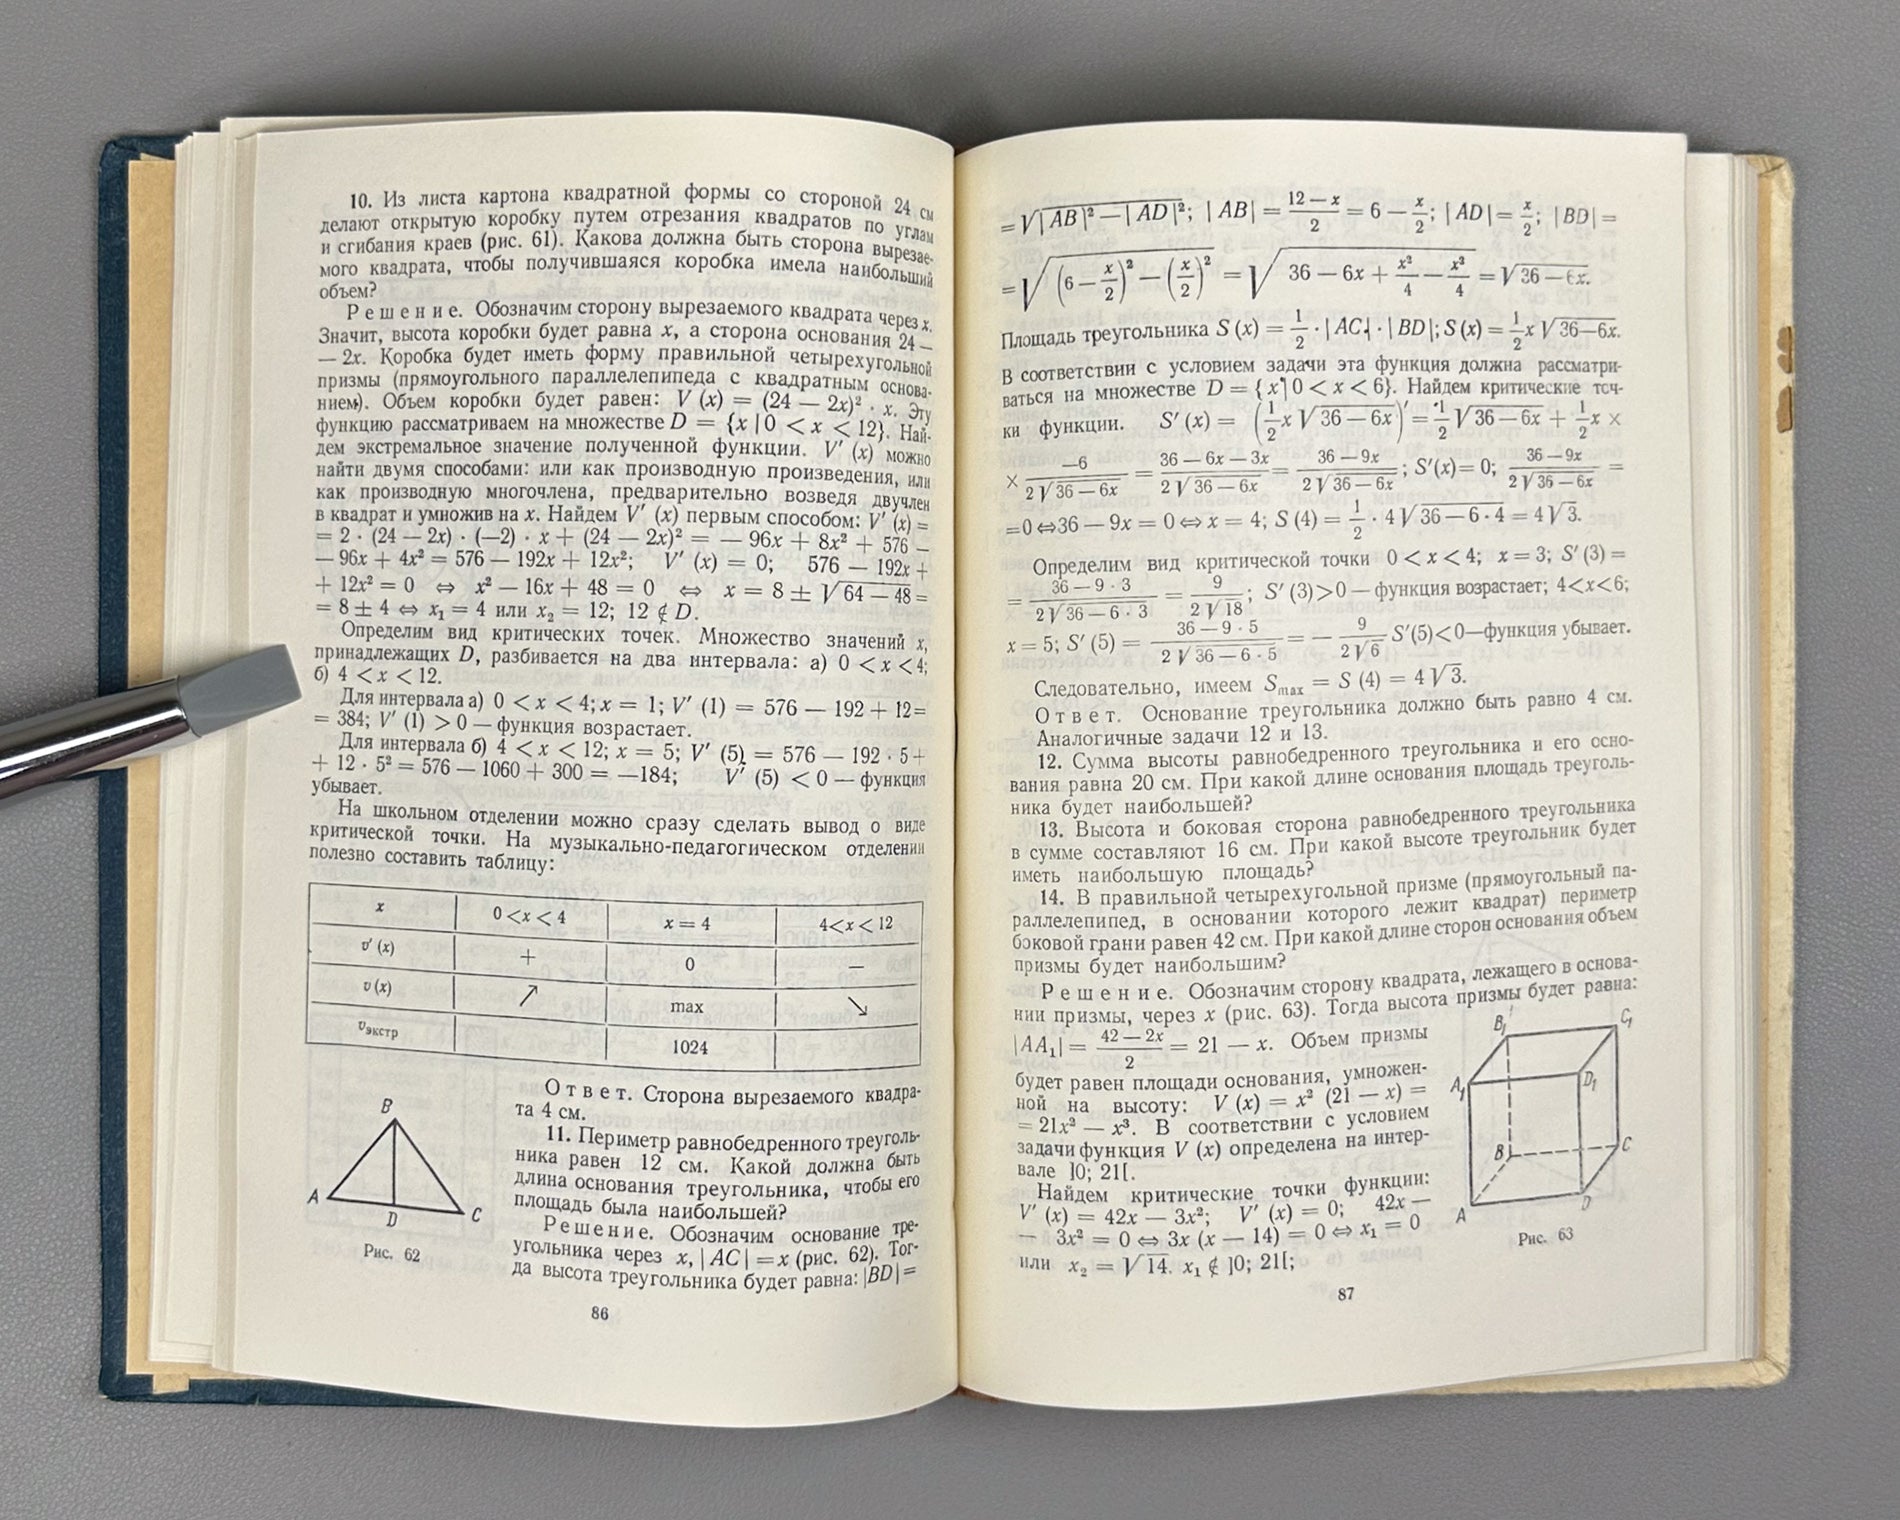 10. Из листа картона квадратной формы со стороной 24 см
делают открытую коробку путем отрезания квадратов по углам
и сгибания краев (рис. 61). Какова должна быть сторона вырезае-
мого квадрата, чтобы получившаяся коробка имела наибольший
объем?
Решение. Обозначим сторону вырезаемого квадрата через x.
Значит, высота коробки будет равна x, а сторона основания 24 —
— 2x. Коробка будет иметь форму правильной четырехугольной
призмы (прямоугольного параллелепипеда с квадратным основа-
нием). Объем коробки будет равен: V (x) = (24 — 2x)² · x. Эту
функцию рассматриваем на множестве D = {x | 0 < x < 12}. Най-
дем экстремальное значение полученной функции. V′ (x) можно
найти двумя способами: или как производную произведения, или
как производную многочлена, предварительно возведя двучлен
в квадрат и умножив на x. Найдем V′ (x) первым способом: V′ (x) =
= 2 · (24 — 2x) · (—2) · x + (24 — 2x)² = — 96x + 8x² + 576 —
— 96x + 4x² = 576 — 192x + 12x²; V′ (x) = 0; 576 — 192x +
+ 12x² = 0 ⇔ x² — 16x + 48 = 0 ⇔ x = 8 ± √64 — 48 =
= 8 ± 4 ⇔ x₁ = 4 или x₂ = 12; 12 ∉ D.
Определим вид критических точек. Множество значений x,
принадлежащих D, разбивается на два интервала: а) 0 < x < 4;
б) 4 < x < 12.
Для интервала а) 0 < x < 4; x = 1; V′ (1) = 576 — 192 + 12=
= 384; V′ (1) > 0 — функция возрастает.
Для интервала б) 4 < x < 12; x = 5; V′ (5) = 576 — 192 · 5+
+ 12 · 5² = 576 — 1060 + 300 = —184; V′ (5) < 0 — функция
убывает.
На школьном отделении можно сразу сделать вывод о виде
критической точки. На музыкально-педагогическом отделении
полезно составить таблицу:
x 0<x<4 x = 4 4<x<12
v′ (x) + 0 —
v (x) ↗ max ↘
vэкстр 1024
Ответ. Сторона вырезаемого квадра-
та 4 см.
11. Периметр равнобедренного треуголь-
ника равен 12 см. Какой должна быть
длина основания треугольника, чтобы его
площадь была наибольшей?
Решение. Обозначим основание тре-
угольника через x, | AC | = x (рис. 62). Тог-
да высота треугольника будет равна: |BD| =
B
A
D
C
Рис. 62
86
= √| AB |² — | AD |²; | AB| = (12 — x)/2 = 6 — x/2; | AD | = x/2; | BD| =
= √(6 — x/2)² — (x/2)² = √36 — 6x + x²/4 — x²/4 = √36 — 6x.
Площадь треугольника S (x) = 1/2 · | AC | · | BD |; S (x) = 1/2 x √36—6x.
В соответствии с условием задачи эта функция должна рассматри-
ваться на множестве D = {x | 0 < x < 6}. Найдем критические точ-
ки функции. S′ (x) = (1/2 x √36 — 6x)′ = 1/2 √36 — 6x + 1/2 x ×
× —6/(2 √36 — 6x) = (36 — 6x — 3x)/(2 √36 — 6x) = (36 — 9x)/(2 √36 — 6x); S′(x)= 0; (36 — 9x)/(2 √36 — 6x) =
=0 ⇔ 36 — 9x = 0 ⇔ x = 4; S (4) = 1/2 · 4 √36 — 6 · 4 = 4 √3.
Определим вид критической точки 0 < x < 4; x = 3; S′ (3) =
= (36 — 9 · 3)/(2 √36 — 6 · 3) = 9/(2 √18); S′ (3)>0 — функция возрастает; 4<x<6;
x = 5; S′ (5) = (36 — 9 · 5)/(2 √36 — 6 · 5) = — 9/(2 √6) S′(5)<0—функция убывает.
Следовательно, имеем Smax = S (4) = 4 √3.
Ответ. Основание треугольника должно быть равно 4 см.
Аналогичные задачи 12 и 13.
12. Сумма высоты равнобедренного треугольника и его осно-
вания равна 20 см. При какой длине основания площадь треуголь-
ника будет наибольшей?
13. Высота и боковая сторона равнобедренного треугольника
в сумме составляют 16 см. При какой высоте треугольник будет
иметь наибольшую площадь?
14. В правильной четырехугольной призме (прямоугольный па-
раллелепипед, в основании которого лежит квадрат) периметр
боковой грани равен 42 см. При какой длине сторон основания объем
призмы будет наибольшим?
Решение. Обозначим сторону квадрата, лежащего в основа-
нии призмы, через x (рис. 63). Тогда высота призмы будет равна:
|AA₁| = (42 — 2x)/2 = 21 — x. Объем призмы
будет равен площади основания, умножен-
ной на высоту: V (x) = x² (21 — x) =
= 21x² — x³. В соответствии с условием
задачи функция V (x) определена на интер-
вале ]0; 21[.
Найдем критические точки функции:
V′ (x) = 42x — 3x²; V′ (x) = 0; 42x —
— 3x² = 0 ⇔ 3x (x — 14) = 0 ⇔ x₁ = 0
или x₂ = √14. x₁ ∉ ]0; 21[;
B₁
C₁
A₁
D₁
B
C
A
D
Рис. 63
87